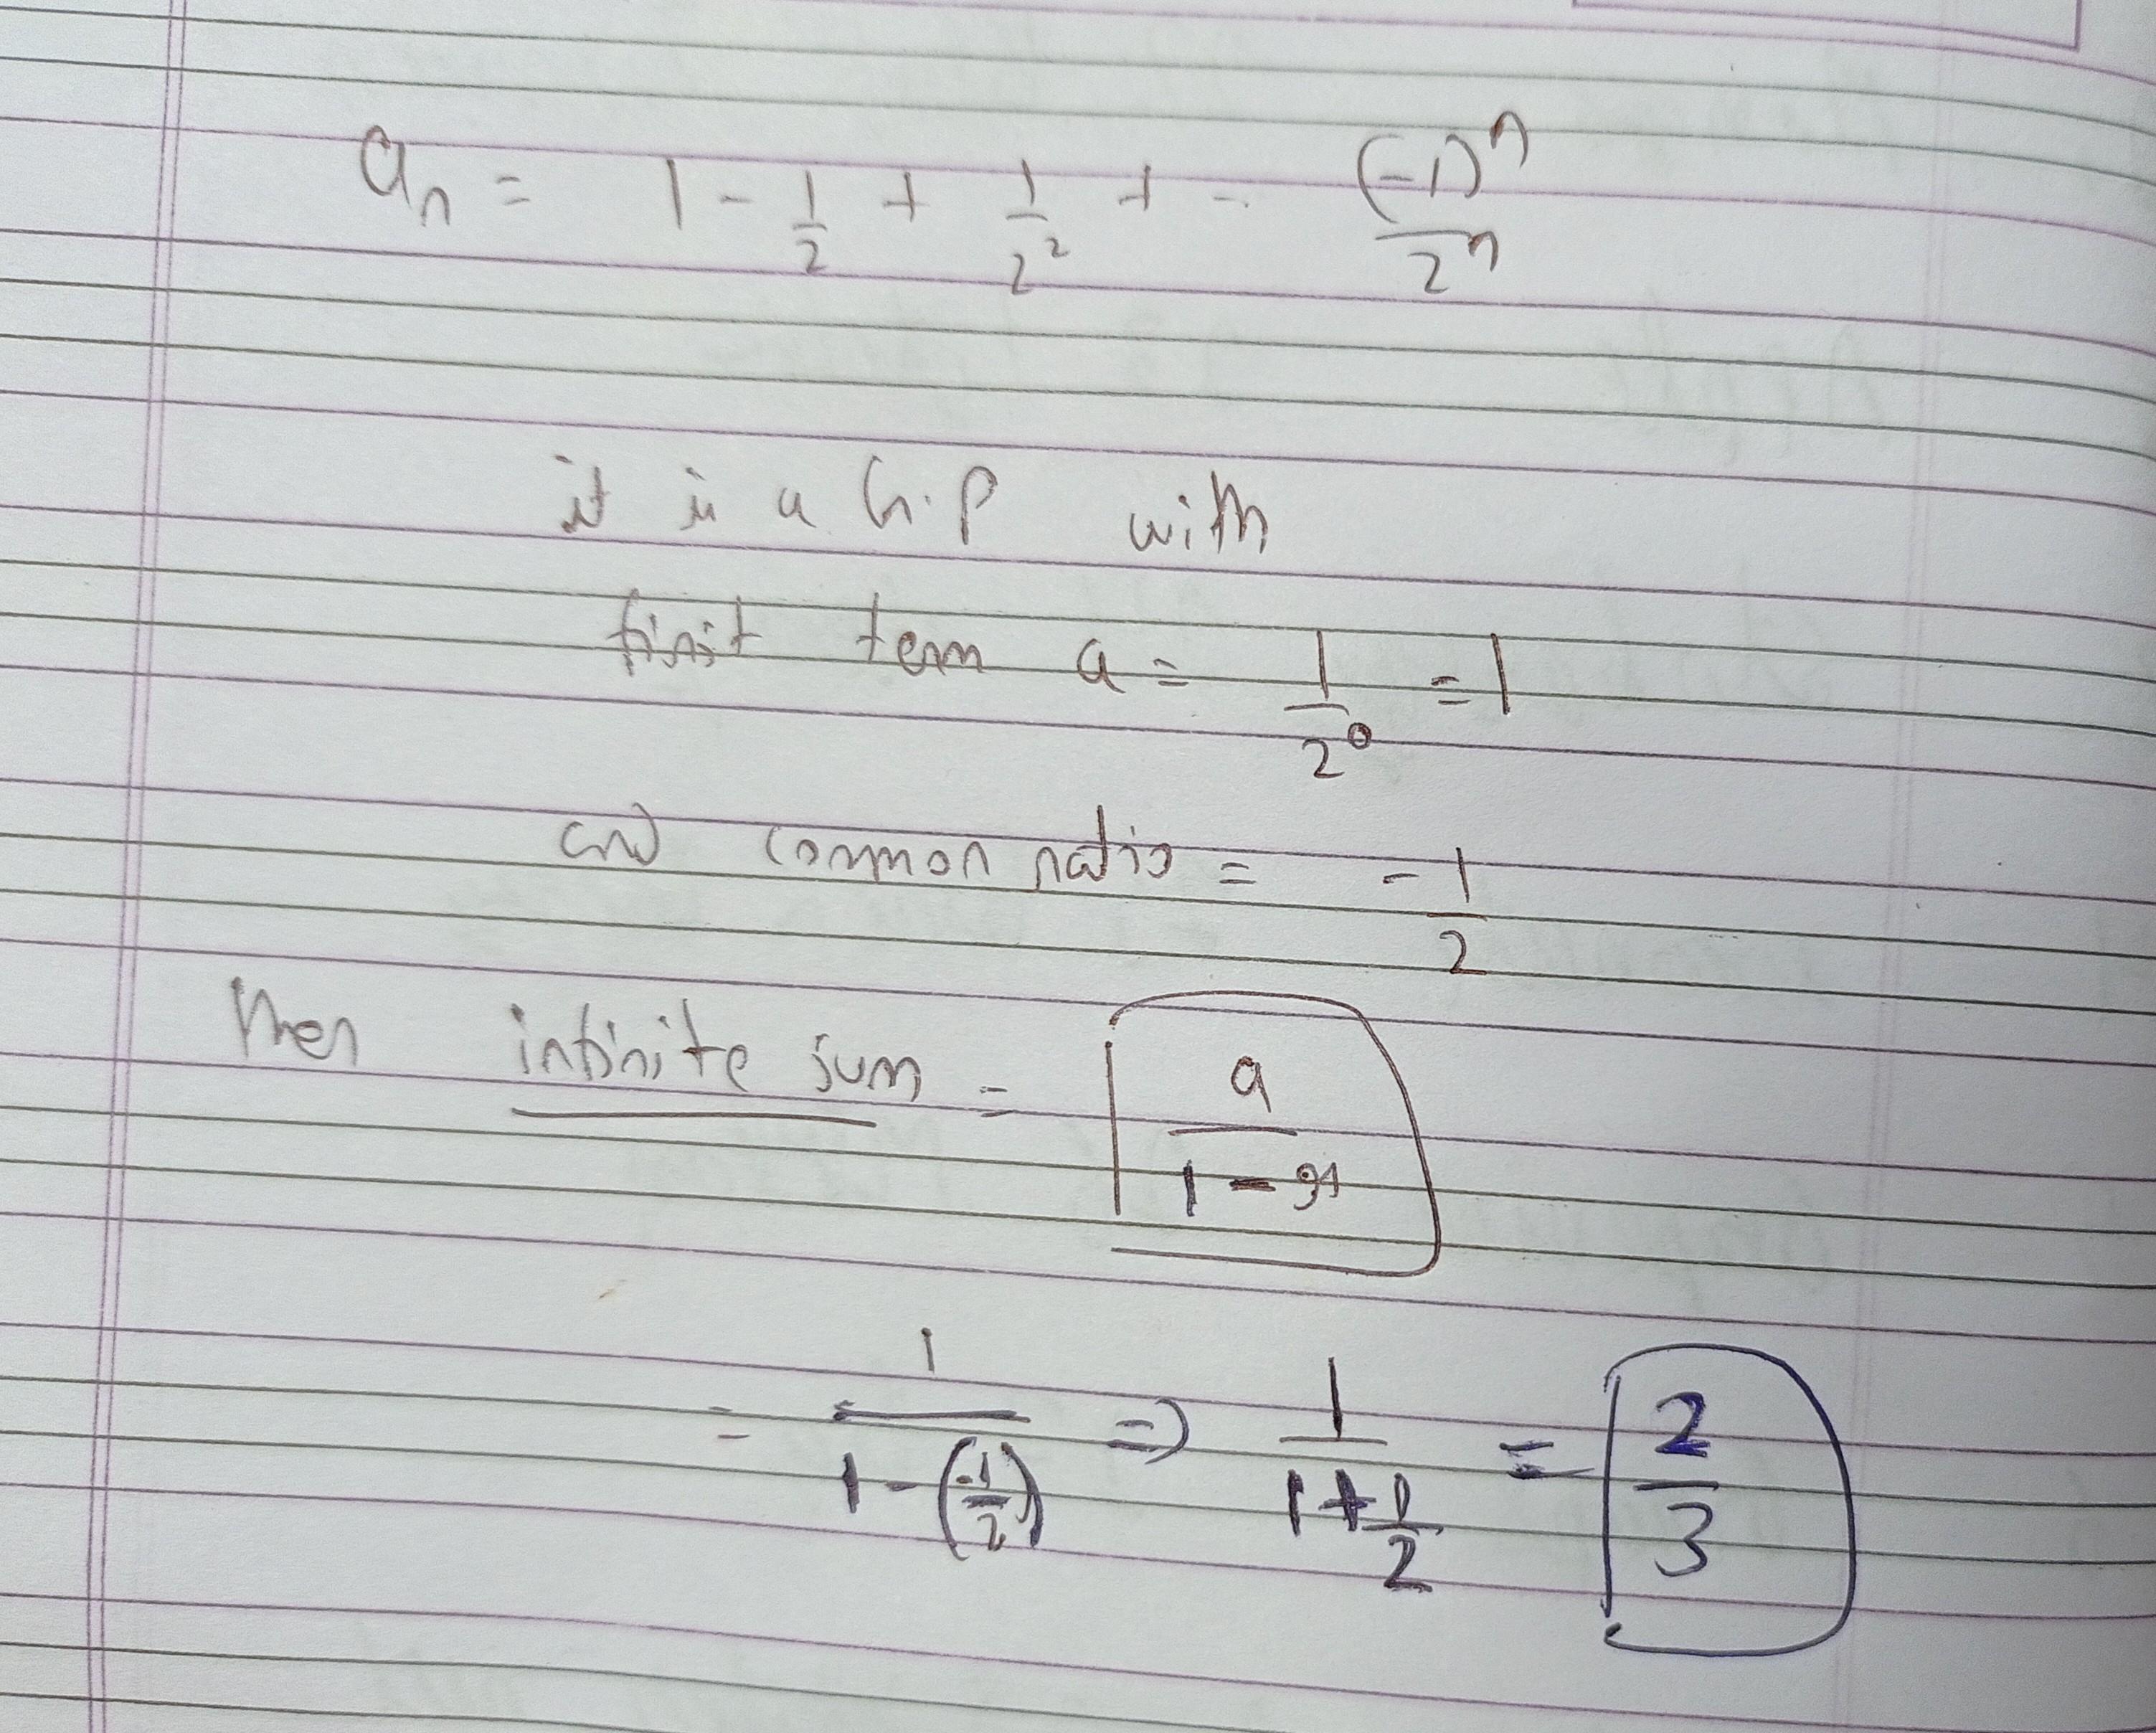 aₙ = 1 - 1/2 + 1/2² + - - (-1)ⁿ/2ⁿ
it is a G.P with
first term a = 1/2⁰ = 1
and common ratio = -1/2
then infinite sum = a/(1-r)
= 1/(1-(-1/2)) => 1/(1+1/2) = 2/3